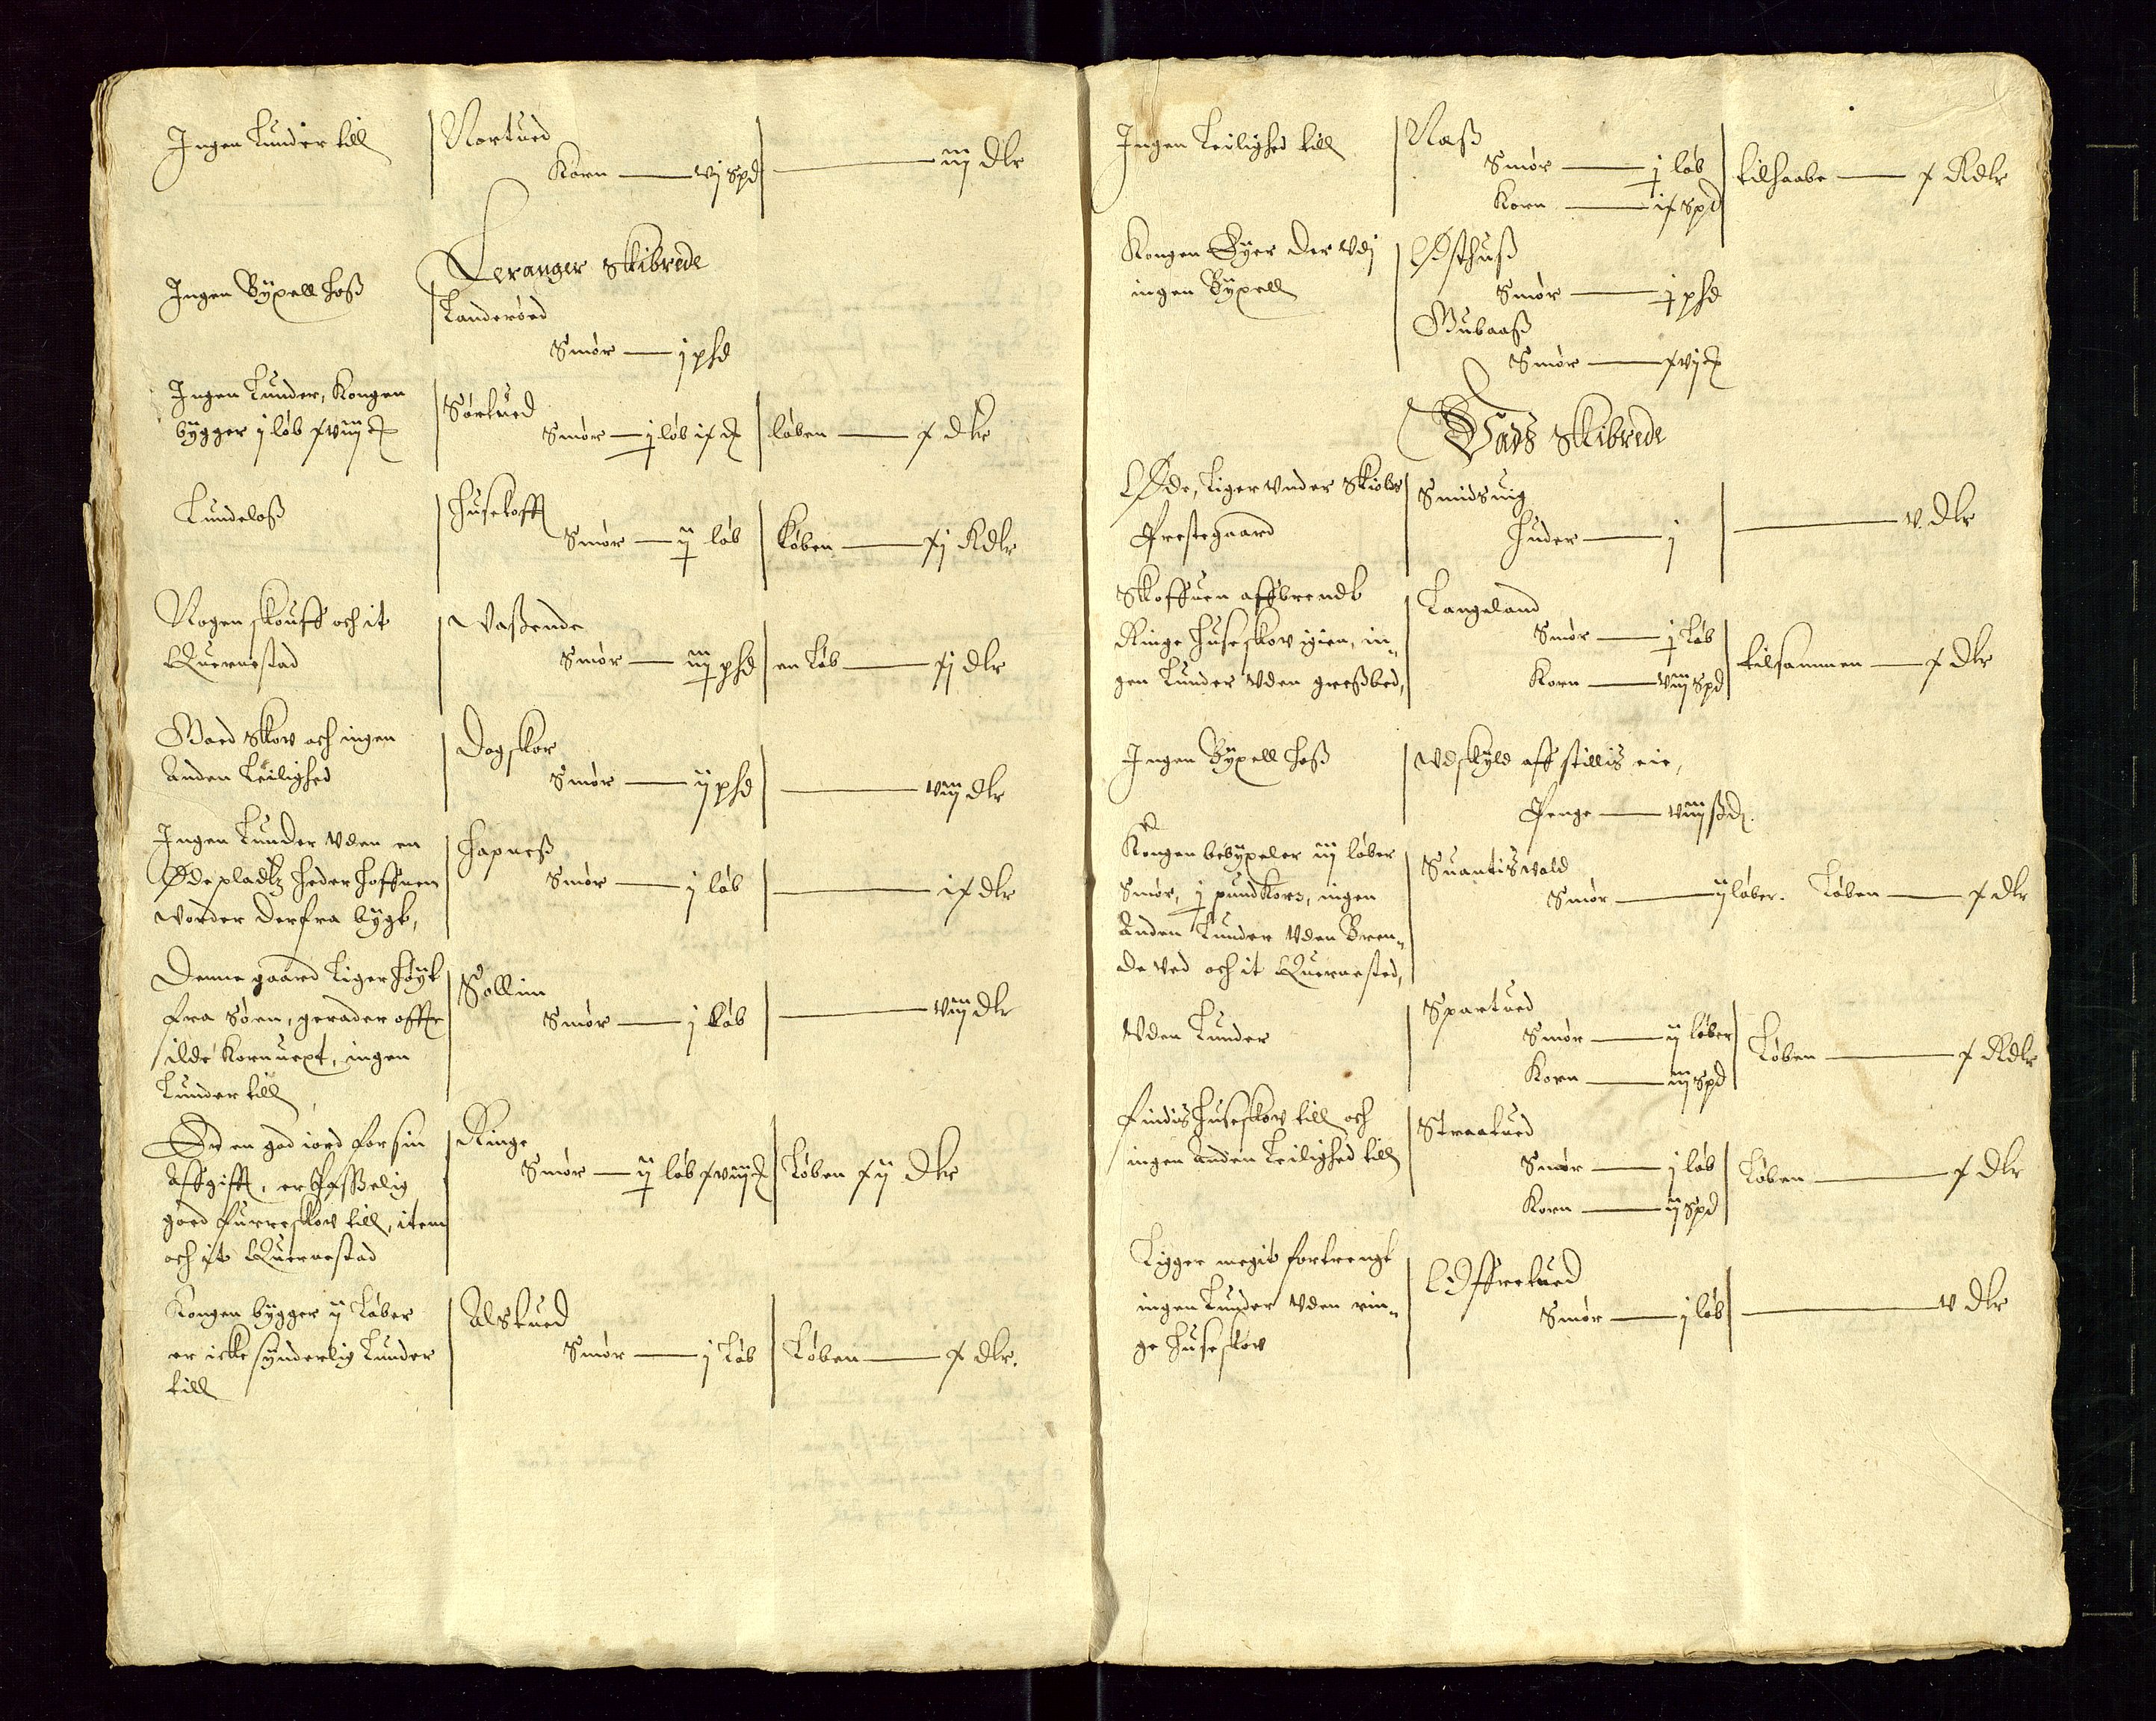 Ingen Lunder till
Nortued
Korn — vj spd
— iiij Dlr
Leranger Skibrede
Ingen Byxell hoß
Landeröed
Smör — j phd
Ingen Lunder, Kongen
bygger j löb
Sörtued
Smör — j löb
löben — x Dlr
Lundeloß
Husetofft
Smör — ij löb
Löben — xj Rdlr
Nogen skouff och it
Quernestad
Waßende
Smör — iiij phd
en Löb — xj Dlr
Maed Skov och ingen
Anden Leilighed
Dogskor
Smör — ij phd
— viij Dlr
Ingen Lunder Uden en
Öde pladtz heder Hoffuen
worder derfra bygt,
Hapneß
Smör — j löb
— ix Dlr
Denne gaard Liger Höyt
fra Söen, gerader offte
ilde Kornuext, ingen
Lunder till
Sollim
Smör — j Löb
— viij Dlr
Er en god iord for sin
Affgifft, er
goed furreskov till, item
och it Quernestad
Ringe
Smör — ij löb
Löben xij Dlr
Kongen bygger ij Löber
er icke synderlig Lunder
till
Alstued
Smör — j Löb
Löben — x Dlr.
Ingen Leilighed till
Næß
Smör — j löb
Korn — ix spd
tilhaabe — x Rdlr
Kongen Eyer der Udj
ingen Byxell
Östhuß
Smör — j phd
Smör —
Vads Skibrede
Öde, Liger Under Skiolds
Prestegaard
Smidsuig
Huder — j
— v. Dlr
Skoffuen affbrendt
Ringe Huseskov igien, in„
gen Lunder Uden greßbed,
Langeland
Smör — j Löb
Korn — viij spd
tilsammen — x Dlr
Ingen Byxell hoß
Udskyld aff stillis eie,
Penge — viij ß d.
Kongen bebyxeler iij löber
Smör, j pund Korn, ingen
Anden Lunder Uden Bren„
de Ved och it Quernested,
Suantisvold
Smör — ij löber. Löben — x Dlr
Uden Lunder
Spartued
Smör — ij löber
Korn — iiij spd
Löben — x Rdlr
Findis Huseskov till och
ingen Anden Leilighed till
Straatued
Smör — j löb
Korn — ij spd
Löben — x Dlr
Ligger megit fortrengt
ingen Lunder Uden rin„
ge Huseskov
Öffretued
Smör — j löb
— v Dlr